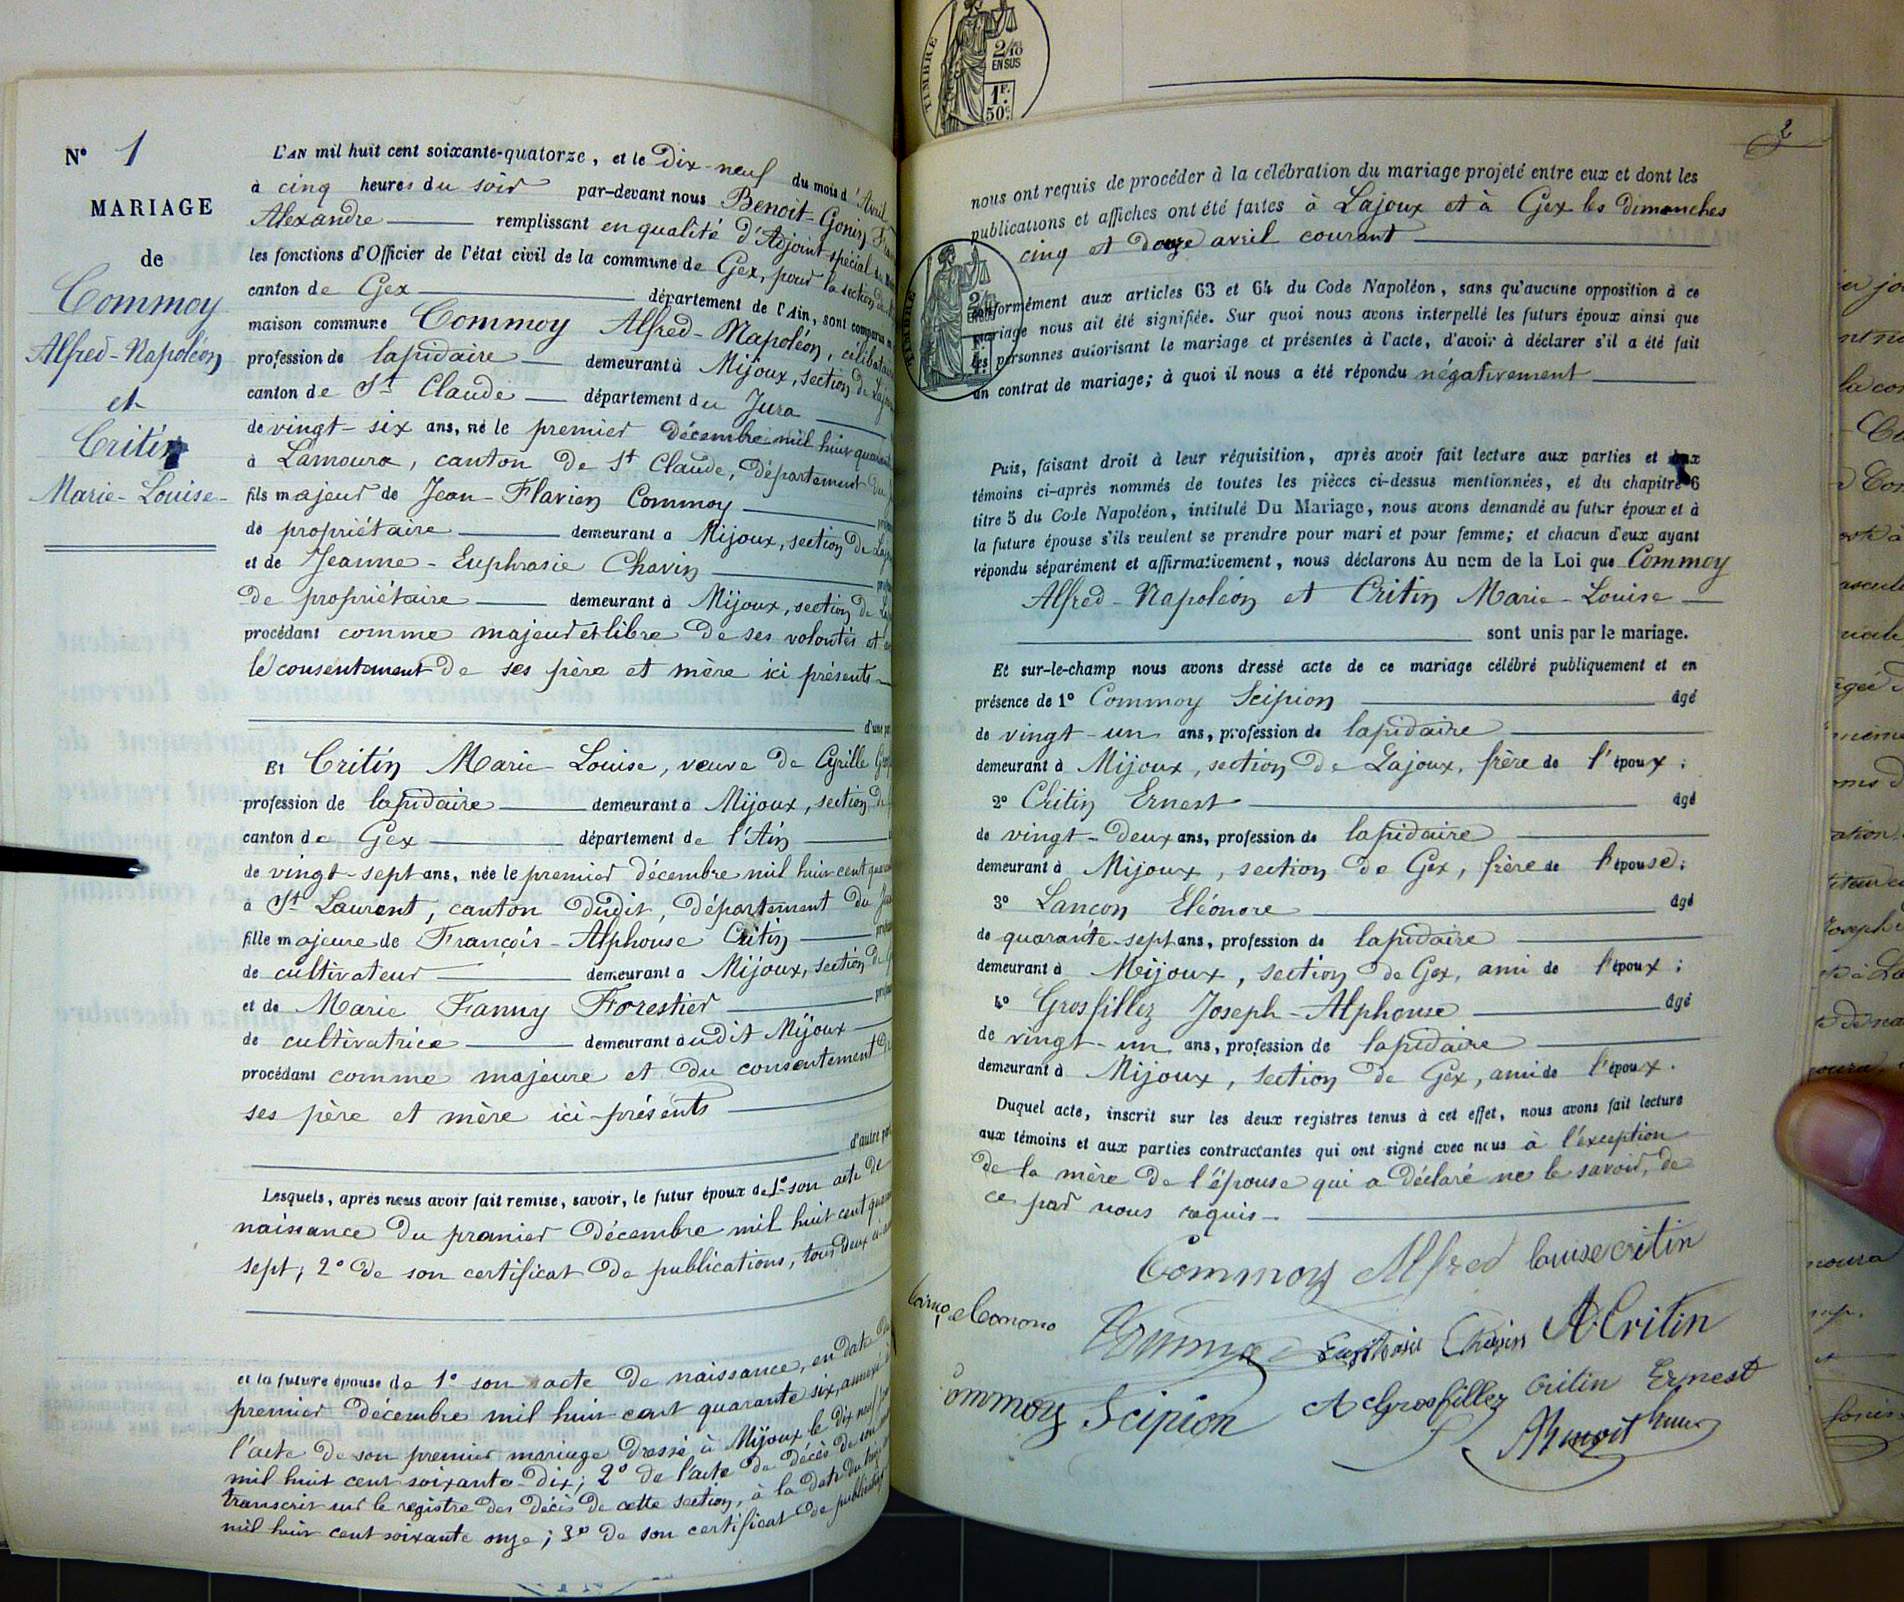 N° 1
MARIAGE
de
Commoy
Alfred-Napoléon
et
Critin
Marie-Louise
L'AN mil huit cent soixante-quatorze, et le dix-neuf du mois d'Avril
à cinq heures du soir par-devant nous Benoit-Gonin
Alexandre remplissant en qualité d'Adjoint spécial
les fonctions d'Officier de l'état civil de la commune de Gex, pour la section
canton de Gex département de l'Ain, sont comparus
maison commune Commoy Alfred-Napoléon, célibataire
profession de lapidaire demeurant à Mijoux, section de Lajoux
canton de St Claude département du Jura
de vingt-six ans, né le premier décembre mil huit quarante
à Lamoura, canton de St Claude, département du
fils majeur de Jean-Flavien Commoy
de propriétaire demeurant à Mijoux, section de
et de Jeanne-Euphrasie Chavin
de propriétaire demeurant à Mijoux, section de
procédant comme majeur et libre de ses volontés et
le consentement de ses père et mère ici présents
d'une part
Et Critin Marie Louise, veuve de Cyrille
profession de lapidaire demeurant à Mijoux, section de
canton de Gex département de l'Ain
de vingt-sept ans, née le premier décembre mil huit cent
à St Laurent, canton dudit, département du Jura
fille majeure de François-Alphonse Critin
de cultivateur demeurant à Mijoux, section de
et de Marie Fanny Forestier
de cultivatrice demeurant audit Mijoux
procédant comme majeure et du consentement de
ses père et mère ici présents
d'autre part
Lesquels, après nous avoir fait remise, savoir, le futur époux de 1° son acte de
naissance du premier décembre mil huit cent quarante
sept; 2° de son certificat de publications, tous deux
et la future épouse de 1° son acte de naissance, en date du
premier décembre mil huit cent quarante six, annexé à
l'acte de son premier mariage dressé à Mijoux le dix neuf
mil huit cent soixante-dix; 2° de l'acte de décès de son
transcrit sur le registre des décès de cette section, à la date du
mil huit cent soixante onze; 3° de son certificat de publication
TIMBRE
2/10
EN SUS
1F.
50c.
2
nous ont requis de procéder à la célébration du mariage projeté entre eux et dont les
publications et affiches ont été faites à Lajoux et à Gex les dimanches
cinq et douze avril courant
conformément aux articles 63 et 64 du Code Napoléon, sans qu'aucune opposition à ce
mariage nous ait été signifiée. Sur quoi nous avons interpellé les futurs époux ainsi que
les personnes autorisant le mariage et présentes à l'acte, d'avoir à déclarer s'il a été fait
un contrat de mariage; à quoi il nous a été répondu négativement
Puis, faisant droit à leur réquisition, après avoir fait lecture aux parties et aux
témoins ci-après nommés de toutes les pièces ci-dessus mentionnées, et du chapitre 6
titre 5 du Code Napoléon, intitulé Du Mariage, nous avons demandé au futur époux et à
la future épouse s'ils veulent se prendre pour mari et pour femme; et chacun d'eux ayant
répondu séparément et affirmativement, nous déclarons Au nom de la Loi que Commoy
Alfred-Napoléon et Critin Marie-Louise
sont unis par le mariage.
Et sur-le-champ nous avons dressé acte de ce mariage célébré publiquement et en
présence de 1° Commoy Scipion âgé
de vingt-un ans, profession de lapidaire
demeurant à Mijoux, section de Lajoux, frère de l'époux;
2° Critin Ernest âgé
de vingt-deux ans, profession de lapidaire
demeurant à Mijoux, section de Gex, frère de l'épouse;
3° Lançon Eléonore âgé
de quarante-sept ans, profession de lapidaire
demeurant à Mijoux, section de Gex, ami de l'époux;
4° Grosfillez Joseph-Alphonse âgé
de vingt-un ans, profession de lapidaire
demeurant à Mijoux, section de Gex, ami de l'époux.
Duquel acte, inscrit sur les deux registres tenus à cet effet, nous avons fait lecture
aux témoins et aux parties contractantes qui ont signé avec nous à l'exception
de la mère de l'épouse qui a déclaré ne le savoir, de
ce par nous requis.
Commoy Alfred louise critin
Chavin A. Critin
ommoy Scipion A Grosfillez Critin Ernest
Benoit